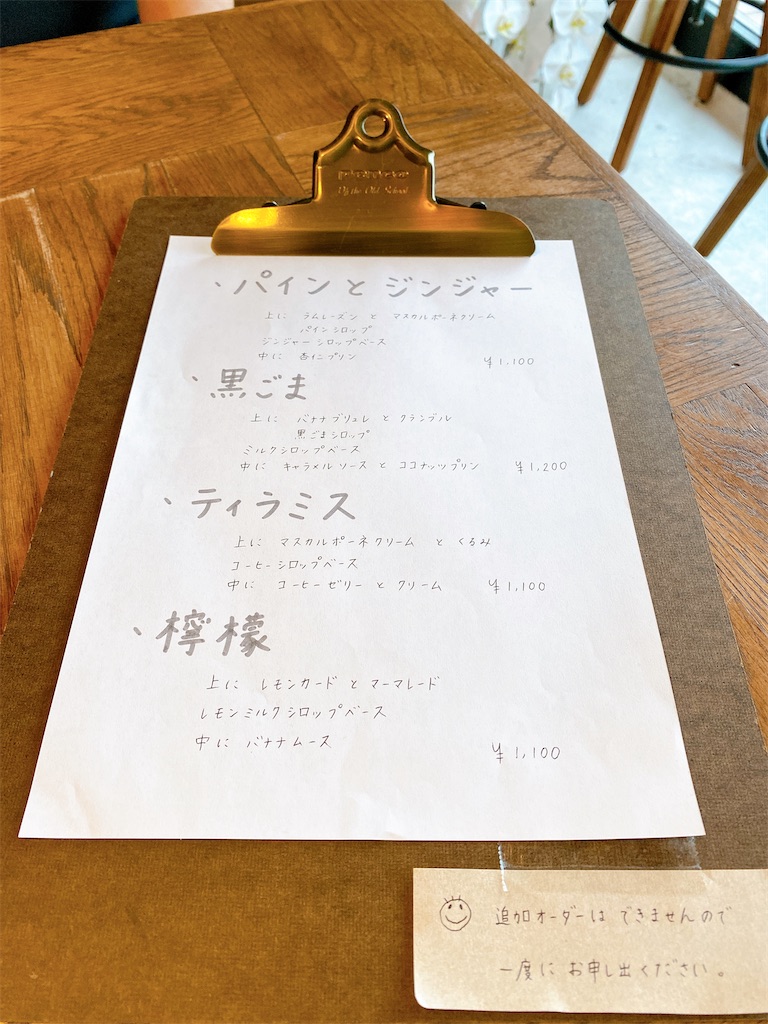 ・パインとジンジャー
上に ラムレーズン と マスカルポーネクリーム
パインシロップ
ジンジャーシロップベース
中に 杏仁プリン ¥1,100
・黒ごま
上に バナナブリュレ と クランブル
黒ごまシロップ
ミルクシロップベース
中に キャラメルソース と ココナッツプリン ¥1,200
・ティラミス
上に マスカルポーネクリーム と くるみ
コーヒーシロップベース
中に コーヒーゼリー と クリーム ¥1,100
・檸檬
上に レモンカード と マーマレード
レモンミルクシロップベース
中に バナナムース ¥1,100
追加オーダーは できませんので
一度に お申し出ください。